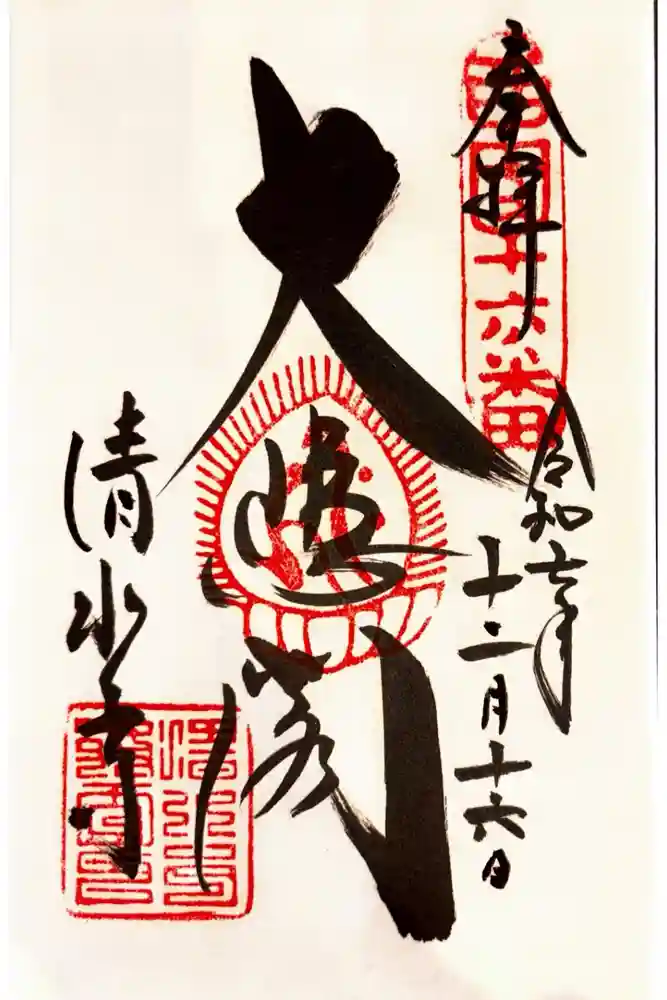 奉拝
西國十六番
令和七年
十二月十六日
大悲閣
清水寺